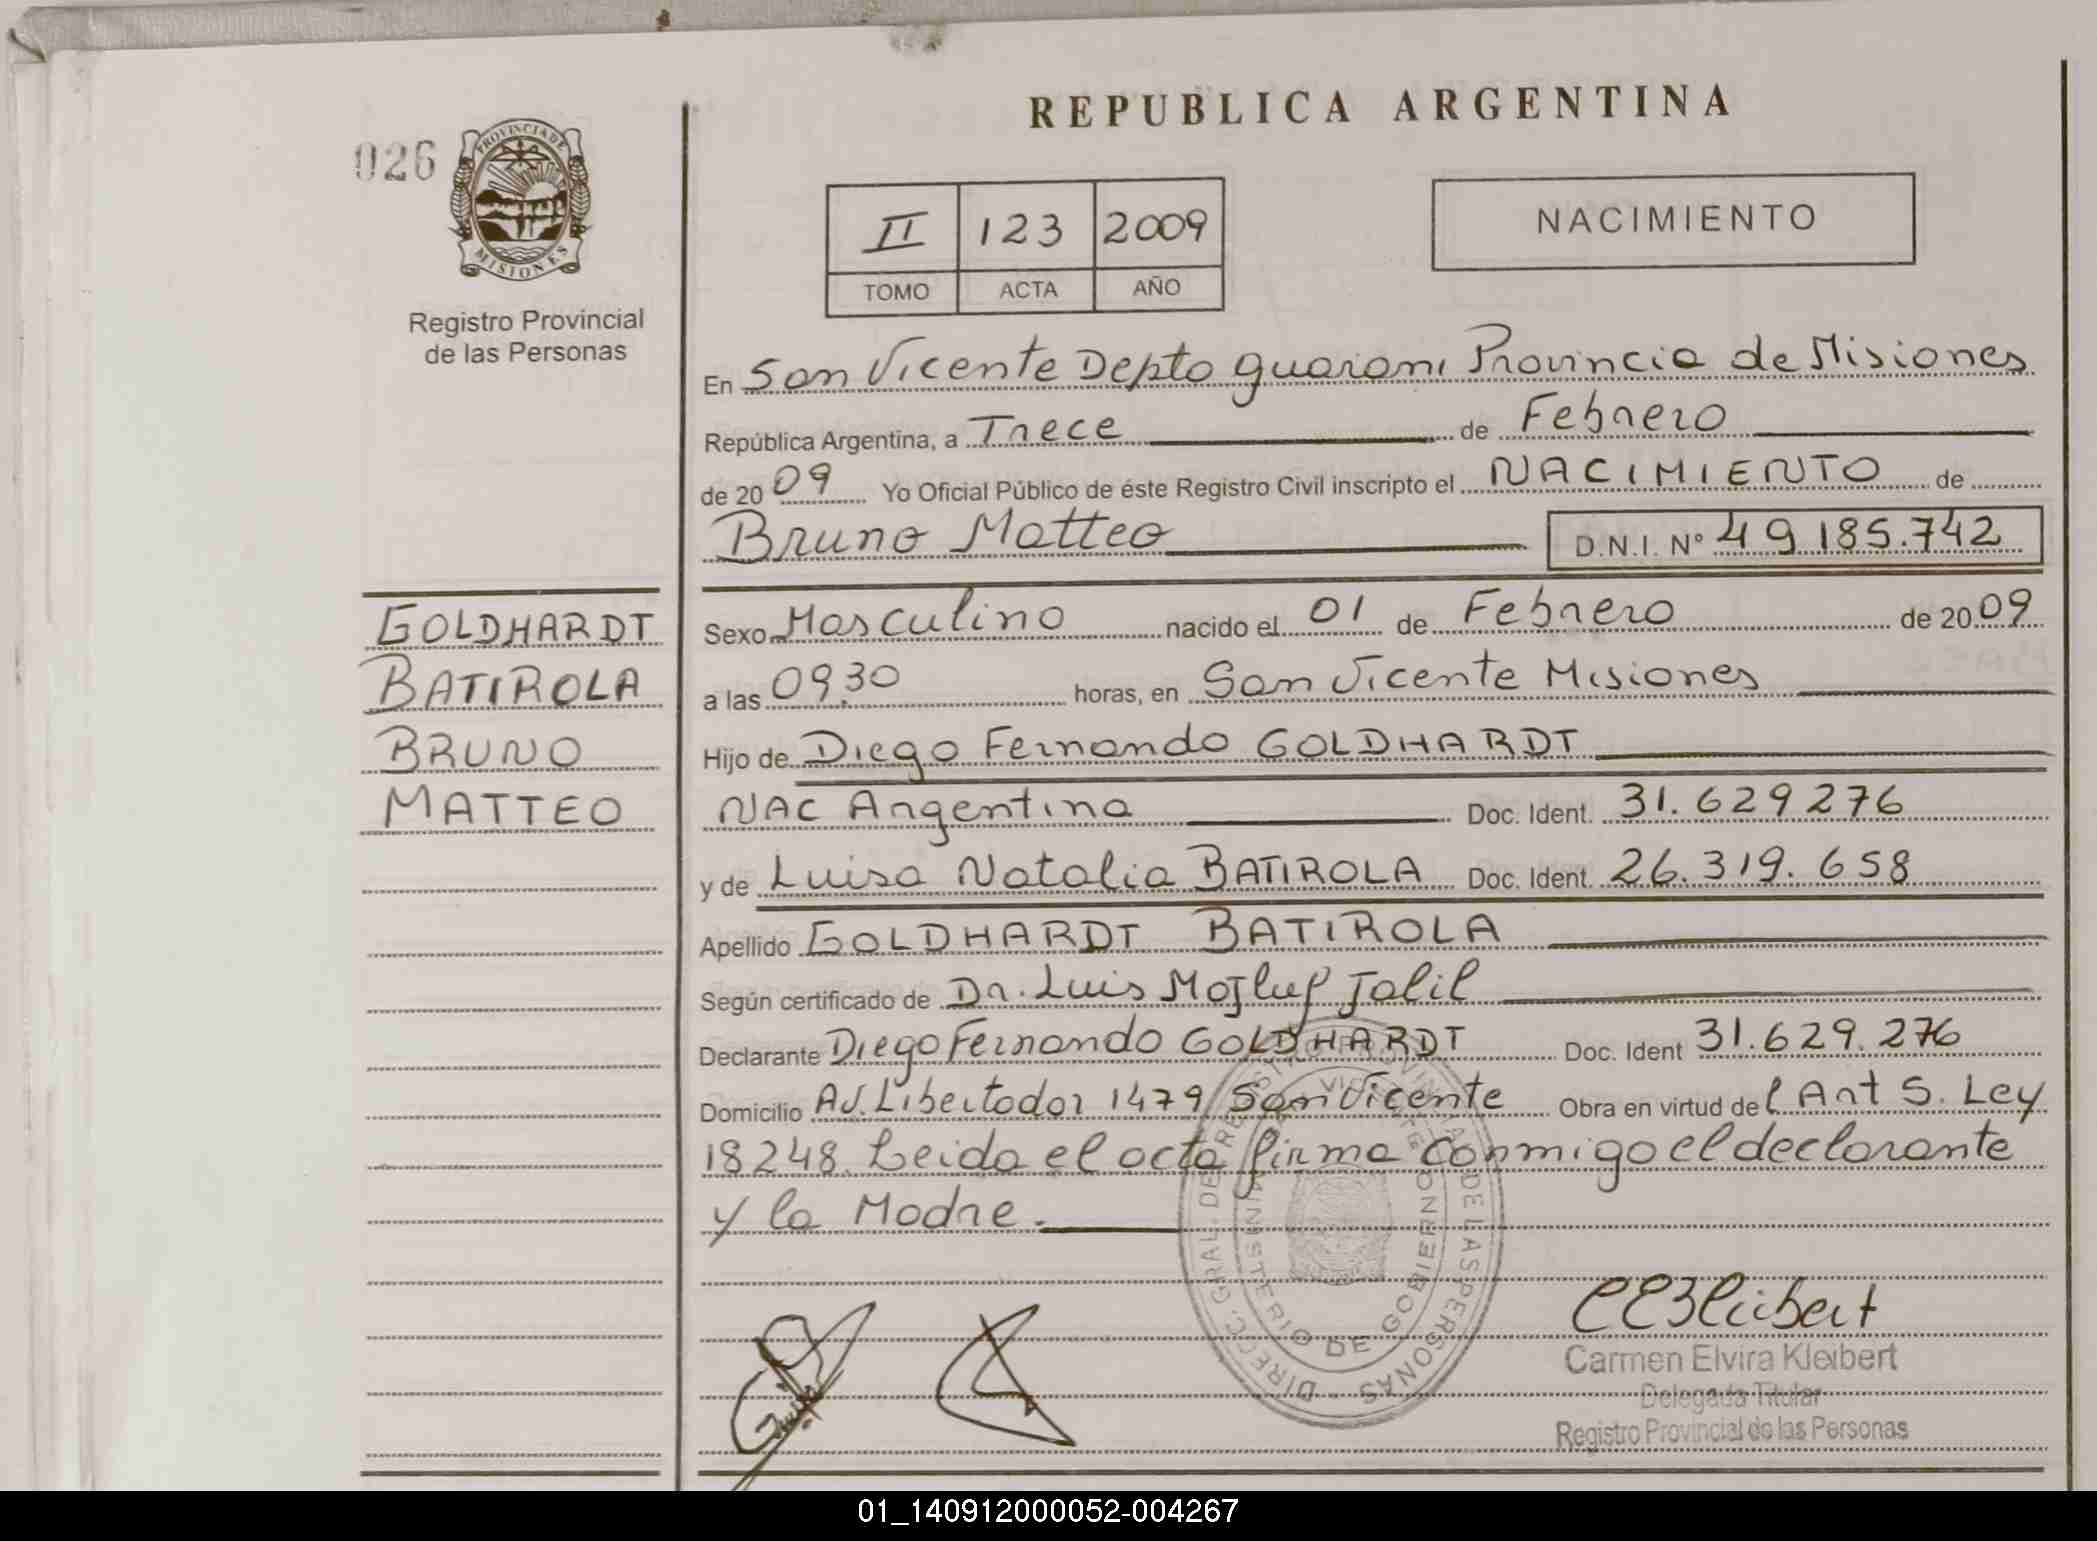 REPUBLICA ARGENTINA
026
PROVINCIA DE
MISIONES
Registro Provincial
de las Personas
II 123 2009
TOMO ACTA AÑO
NACIMIENTO
En San Vicente Depto Guarani Provincia de Misiones
República Argentina, a Trece de Febrero
de 2009 Yo Oficial Público de éste Registro Civil inscripto el NACIMIENTO de
Bruno Matteo D.N.I. Nº 49.185.742
GOLDHARDT
BATIROLA
BRUNO
MATTEO
Sexo Masculino nacido el 01 de Febrero de 2009
a las 09.30 horas, en San Vicente Misiones
Hijo de Diego Fernando GOLDHARDT
NAC Argentina Doc. Ident. 31.629276
y de Luisa Natalia BATIROLA Doc. Ident. 26.319.658
Apellido GOLDHARDT BATIROLA
Según certificado de Dr. Luis Mojluf Jalil
Declarante Diego Fernando GOLDHARDT Doc. Ident 31.629.276
Domicilio Av. Libertador 1479 San Vicente Obra en virtud del Art 5. Ley
18248. Leida el acta firma conmigo el declarante
y la Madre.
DIRECC. GRAL. DE REGISTRO PROVINCIAL DE LAS PERSONAS
MINISTERIO DE GOBIERNO
SAN VICENTE
Carmen Elvira Kleibert
Delegada Titular
Registro Provincial de las Personas
01_140912000052-004267